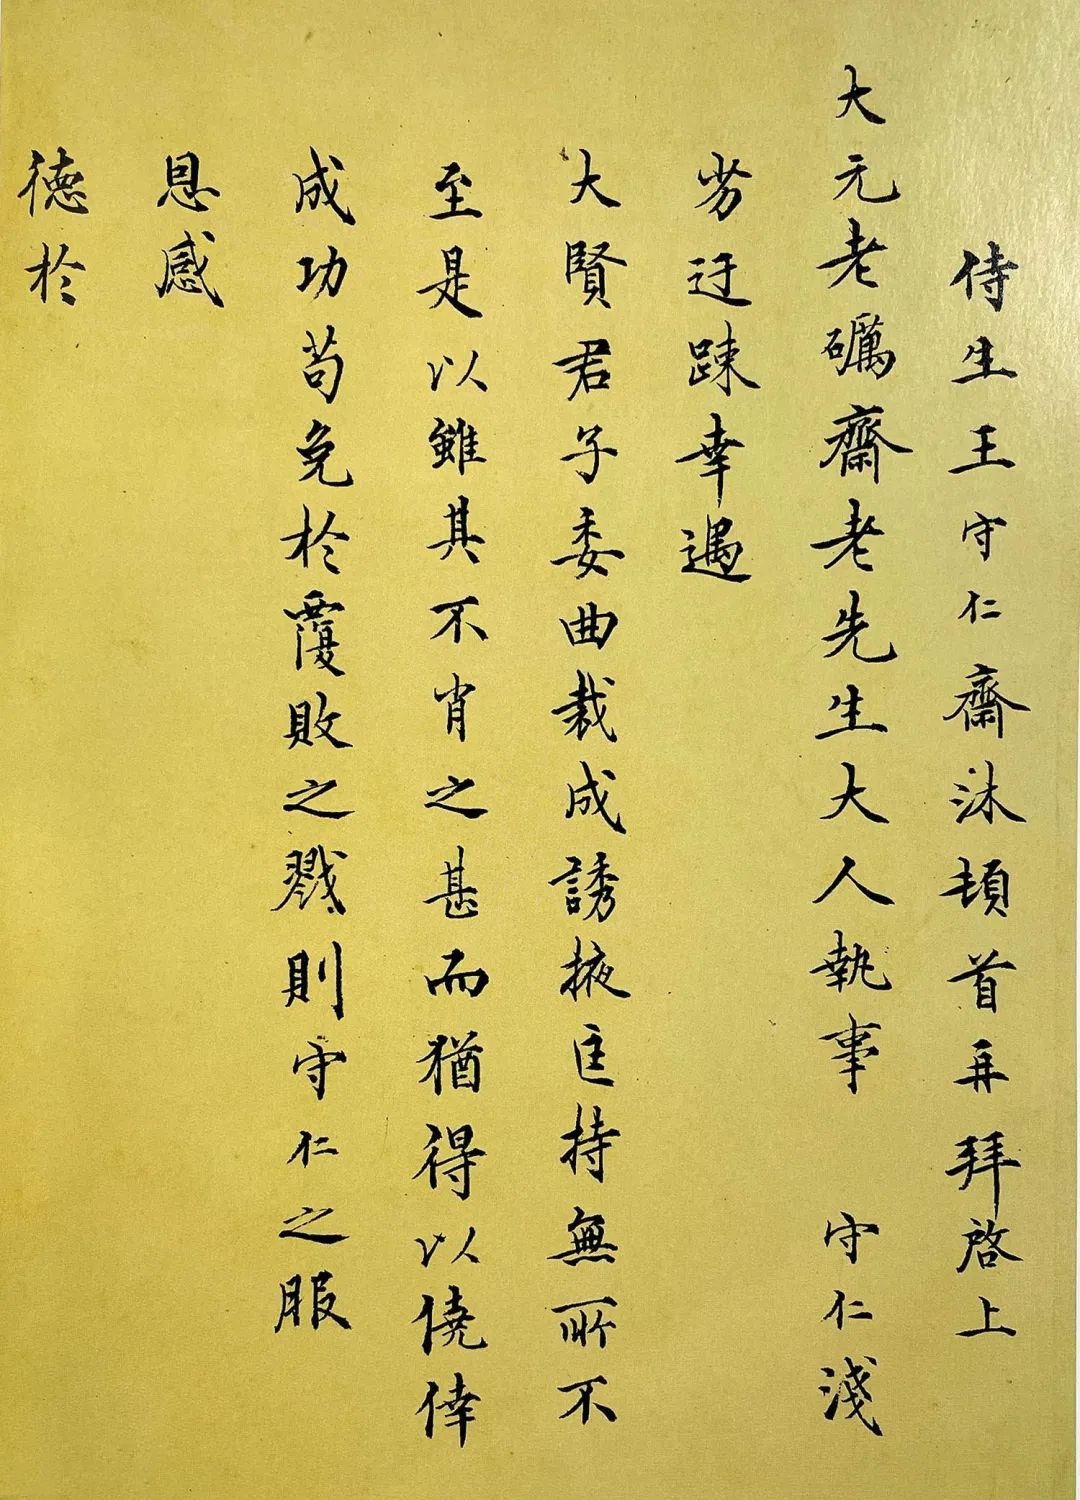 侍生王守仁齋沐頓首再拜啓上
大元老礪齋老先生大人執事 守仁淺
劣迂踈幸遇
大賢君子委曲裁成誘掖匡持無所不
至是以雖其不肖之甚而猶得以僥倖
成功苟免於覆敗之戮則守仁之服
恩感
德於